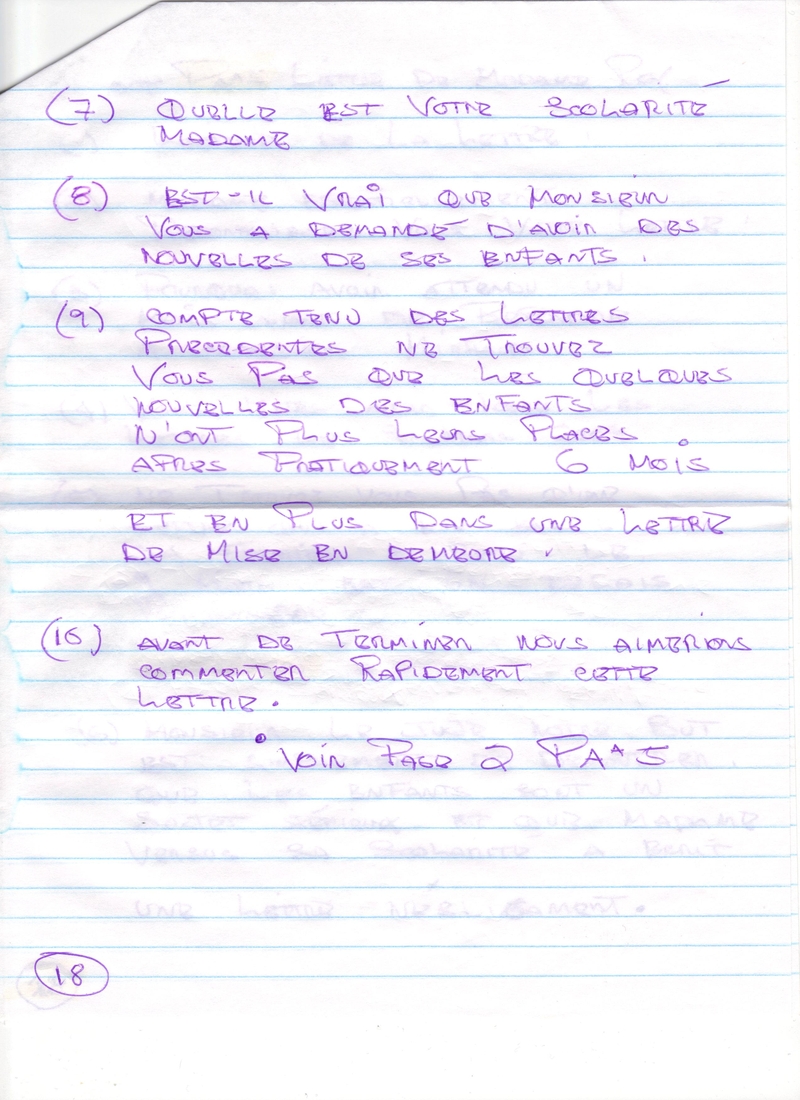 (7) QUELLE EST VOTRE SCOLARITÉ
MADAME
(8) EST-IL VRAI QUE MONSIEUR
VOUS A DEMANDÉ D'AVOIR DES
NOUVELLES DE SES ENFANTS.
(9) COMPTE TENU DES LETTRES
PRECEDENTES NE TROUVEZ
VOUS PAS QUE LES QUELQUES
NOUVELLES DES ENFANTS
N'ONT PLUS LEURS PLACES
APRES PRATIQUEMENT 6 MOIS
ET EN PLUS DANS UNE LETTRE
DE MISE EN DEMEURE.
(10) AVANT DE TERMINER NOUS AIMERIONS
COMMENTER RAPIDEMENT CETTE
LETTRE.
• VOIR PAGE 2 PA^ 5
18